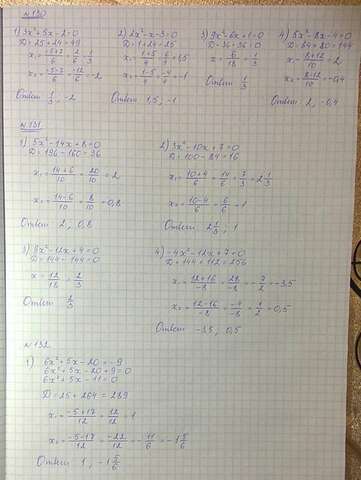 №130
1) 3x²+5x-2=0
D=25+24=49
x₁=(-5+7)/6=2/6=1/3
x₂=(-5-7)/6=-12/6=-2
Ответ 1/3, -2
2) 2x²-x-3=0
D=1+24=25
x₁=(1+5)/4=6/4=1,5
x₂=(1-5)/4=-4/4=-1
Ответ 1,5, -1
3) 9x²-6x+1=0
D=36-36=0
x=6/18=1/3
Ответ 1/3
4) 5x²-8x-4=0
D=64+80=144
x₁=(8+12)/10=2
x₂=(8-12)/10=-0,4
Ответ 2, -0,4
№131
1) 5x²-14x+8=0
D=196-160=36
x₁=(14+6)/10=20/10=2
x₂=(14-6)/10=8/10=0,8
Ответ 2, 0,8
2) 3x²-10x+7=0
D=100-84=16
x₁=(10+4)/6=14/6=7/3=2 1/3
x₂=(10-4)/6=6/6=1
Ответ 2 1/3, 1
3) 9x²-12x+4=0
D=144-144=0
x=12/18=2/3
Ответ 2/3
4) -4x²-12x+7=0
D=144+112=256
x₁=(12+16)/-8=28/-8=-7/2=-3,5
x₂=(12-16)/-8=-4/-8=1/2=0,5
Ответ -3,5, 0,5
№132
1) 6x²+5x-20=-9
6x²+5x-20+9=0
6x²+5x-11=0
D=25+264=289
x₁=(-5+17)/12=12/12=1
x₂=(-5-17)/12=-22/12=-11/6=-1 5/6
Ответ 1, -1 5/6